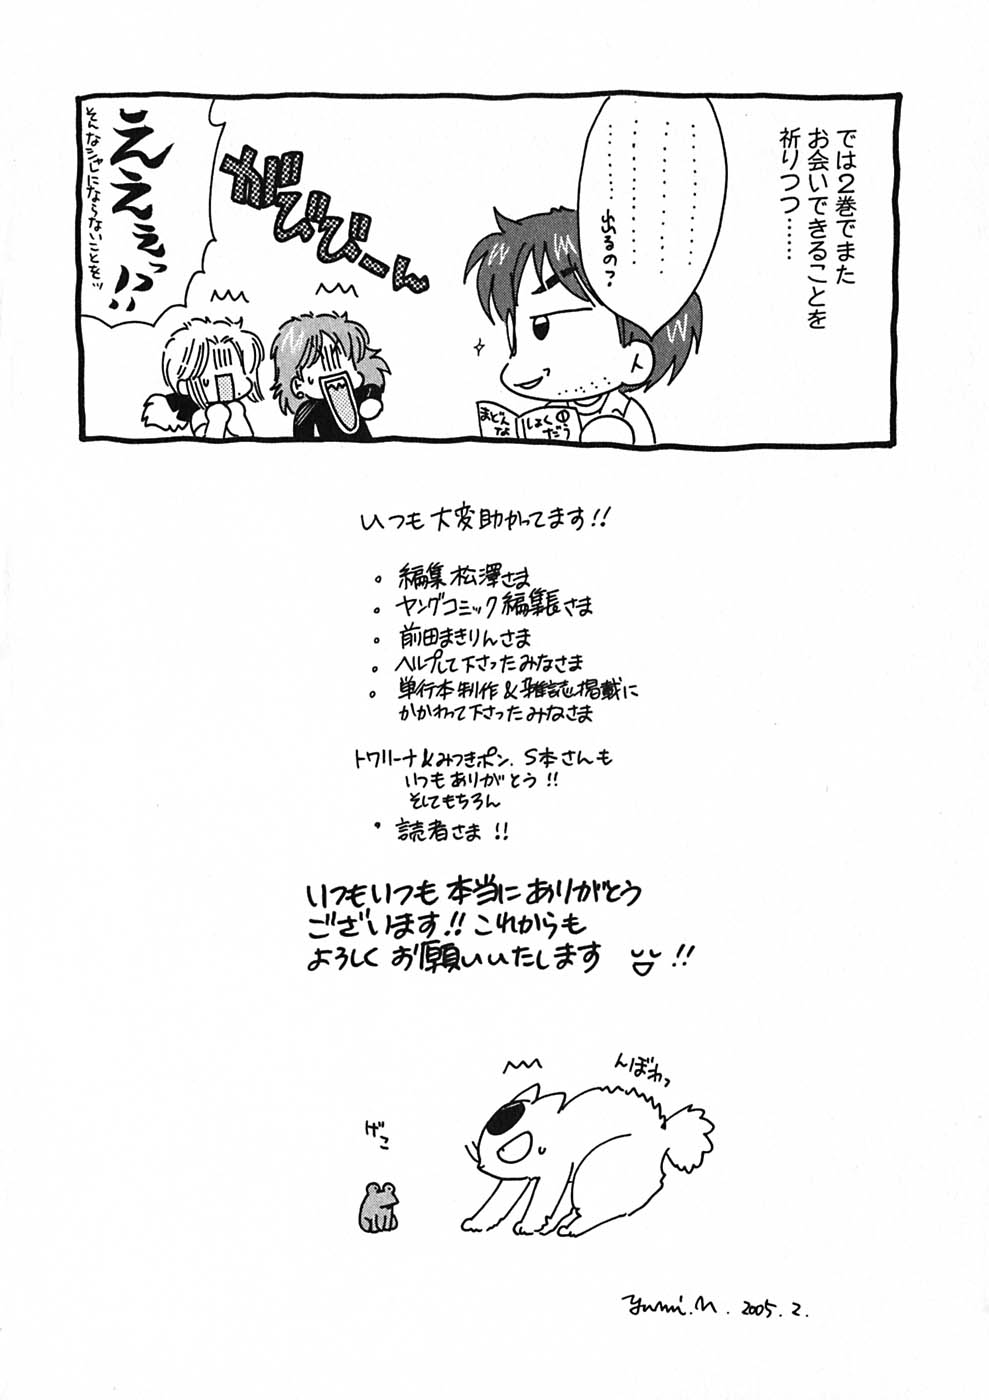 では2巻でまた
お会いできることを
祈りつつ……
…………
…………
……出るの？
まどんな
しょくどう
がびびーん
えええっ!!
そんなシャレにならないことをッ
いつも大変助かってます!!
。編集松澤さま
。ヤングコミック編集長さま
。前田まきりんさま
。ヘルプして下さったみなさま
。単行本制作&雑誌掲載に
かかわって下さったみなさま
トワリーナ&みつきポン、S本さんも
いつもありがとう!!
そしてもちろん
・読者さま!!
いつもいつも本当にありがとう
ございます!!これからも
よろしくお願いいたします!!
んぼわっ
げこ
Yumi.N. 2005.2.